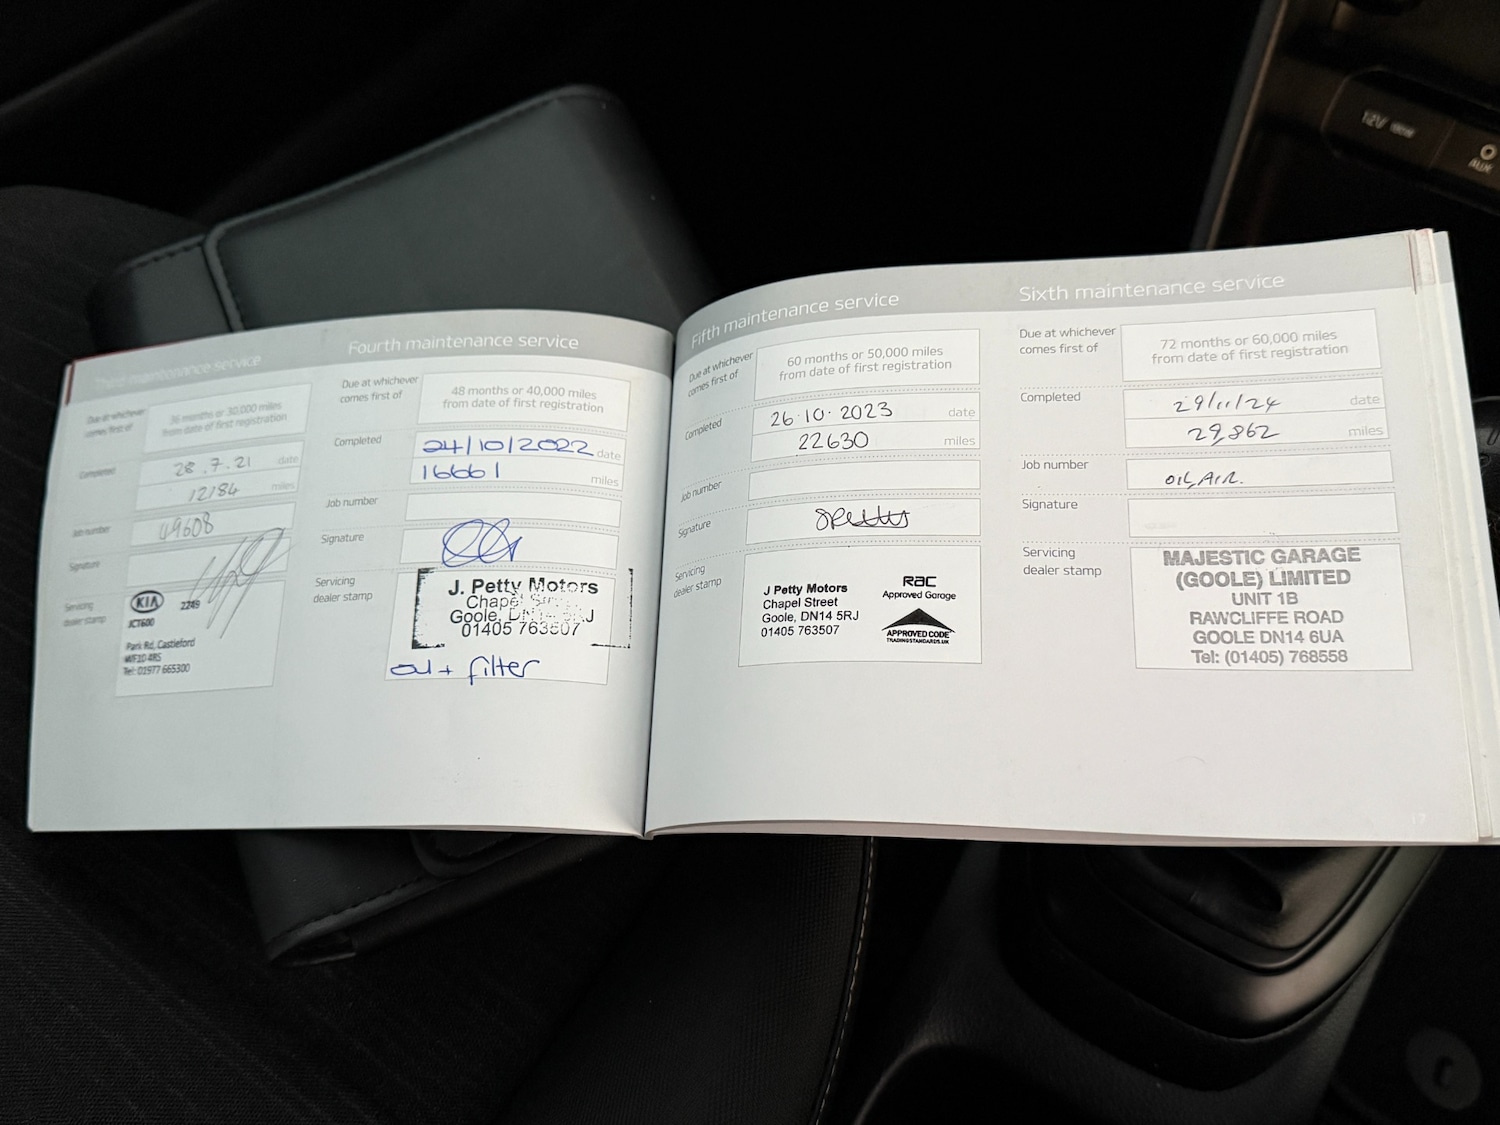 Third maintenance service
Due at whichever
comes first of
36 months or 30,000 miles
from date of first registration
Completed
28.7.21 date
12184 miles
Job number
49608
Signature
Servicing
dealer stamp
KIA 2249
JCT600
Park Rd, Castleford
WF10 4RS
Tel: 01977 665300
Fourth maintenance service
Due at whichever
comes first of
48 months or 40,000 miles
from date of first registration
Completed
24/10/2022 date
16661 miles
Job number
Signature
Servicing
dealer stamp
J. Petty Motors
Chapel
Goole, DN14 5RJ
01405 763507
oil + filter
Fifth maintenance service
Due at whichever
comes first of
60 months or 50,000 miles
from date of first registration
Completed
26.10.2023 date
22630 miles
Job number
Signature
Servicing
dealer stamp
J Petty Motors
Chapel Street
Goole, DN14 5RJ
01405 763507
RAC
Approved Garage
APPROVED CODE
TRADINGSTANDARDS.UK
Sixth maintenance service
Due at whichever
comes first of
72 months or 60,000 miles
from date of first registration
Completed
29/11/24 date
29,862 miles
Job number
OIL, AIR.
Signature
Servicing
dealer stamp
MAJESTIC GARAGE
(GOOLE) LIMITED
UNIT 1B
RAWCLIFFE ROAD
GOOLE DN14 6UA
Tel: (01405) 768558
17
12V 180W
AUX